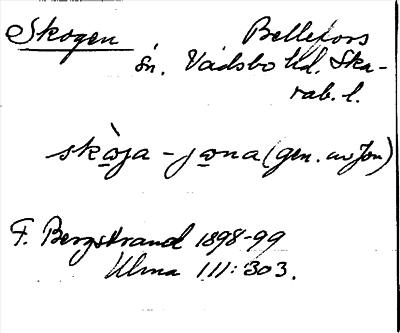 Skogen Bellefors
sn. Vadsbo hd. Ska-
rab. l.
skò̱ja - jo̱na (gen. av Jon)
F. Bergstrand 1898-99
Ulma 111:303.